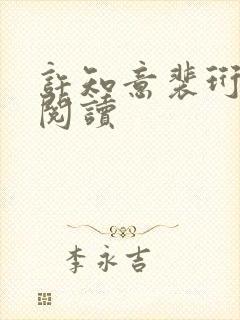 許知意裴珩
閱讀
李永吉